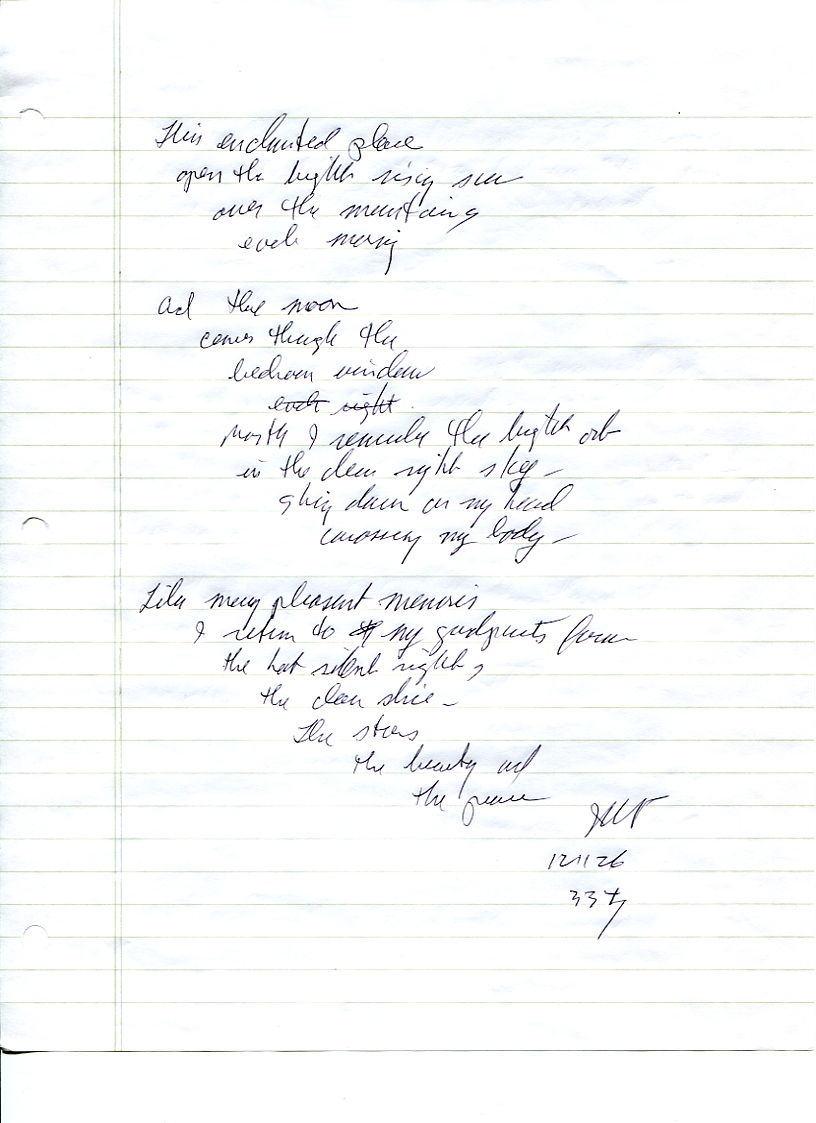 This enchanted place
open the bright rising sun
over the mountains
each morning
and the moon
comes through the
bedroom window
each night
I remember the bright orb
in the clear night sky –
down on my head
caressing my body –
Like many pleasant memories
I return to my grandparents farm
the hot silent nights,
the clear skies –
The stars
the beauty and
the peace